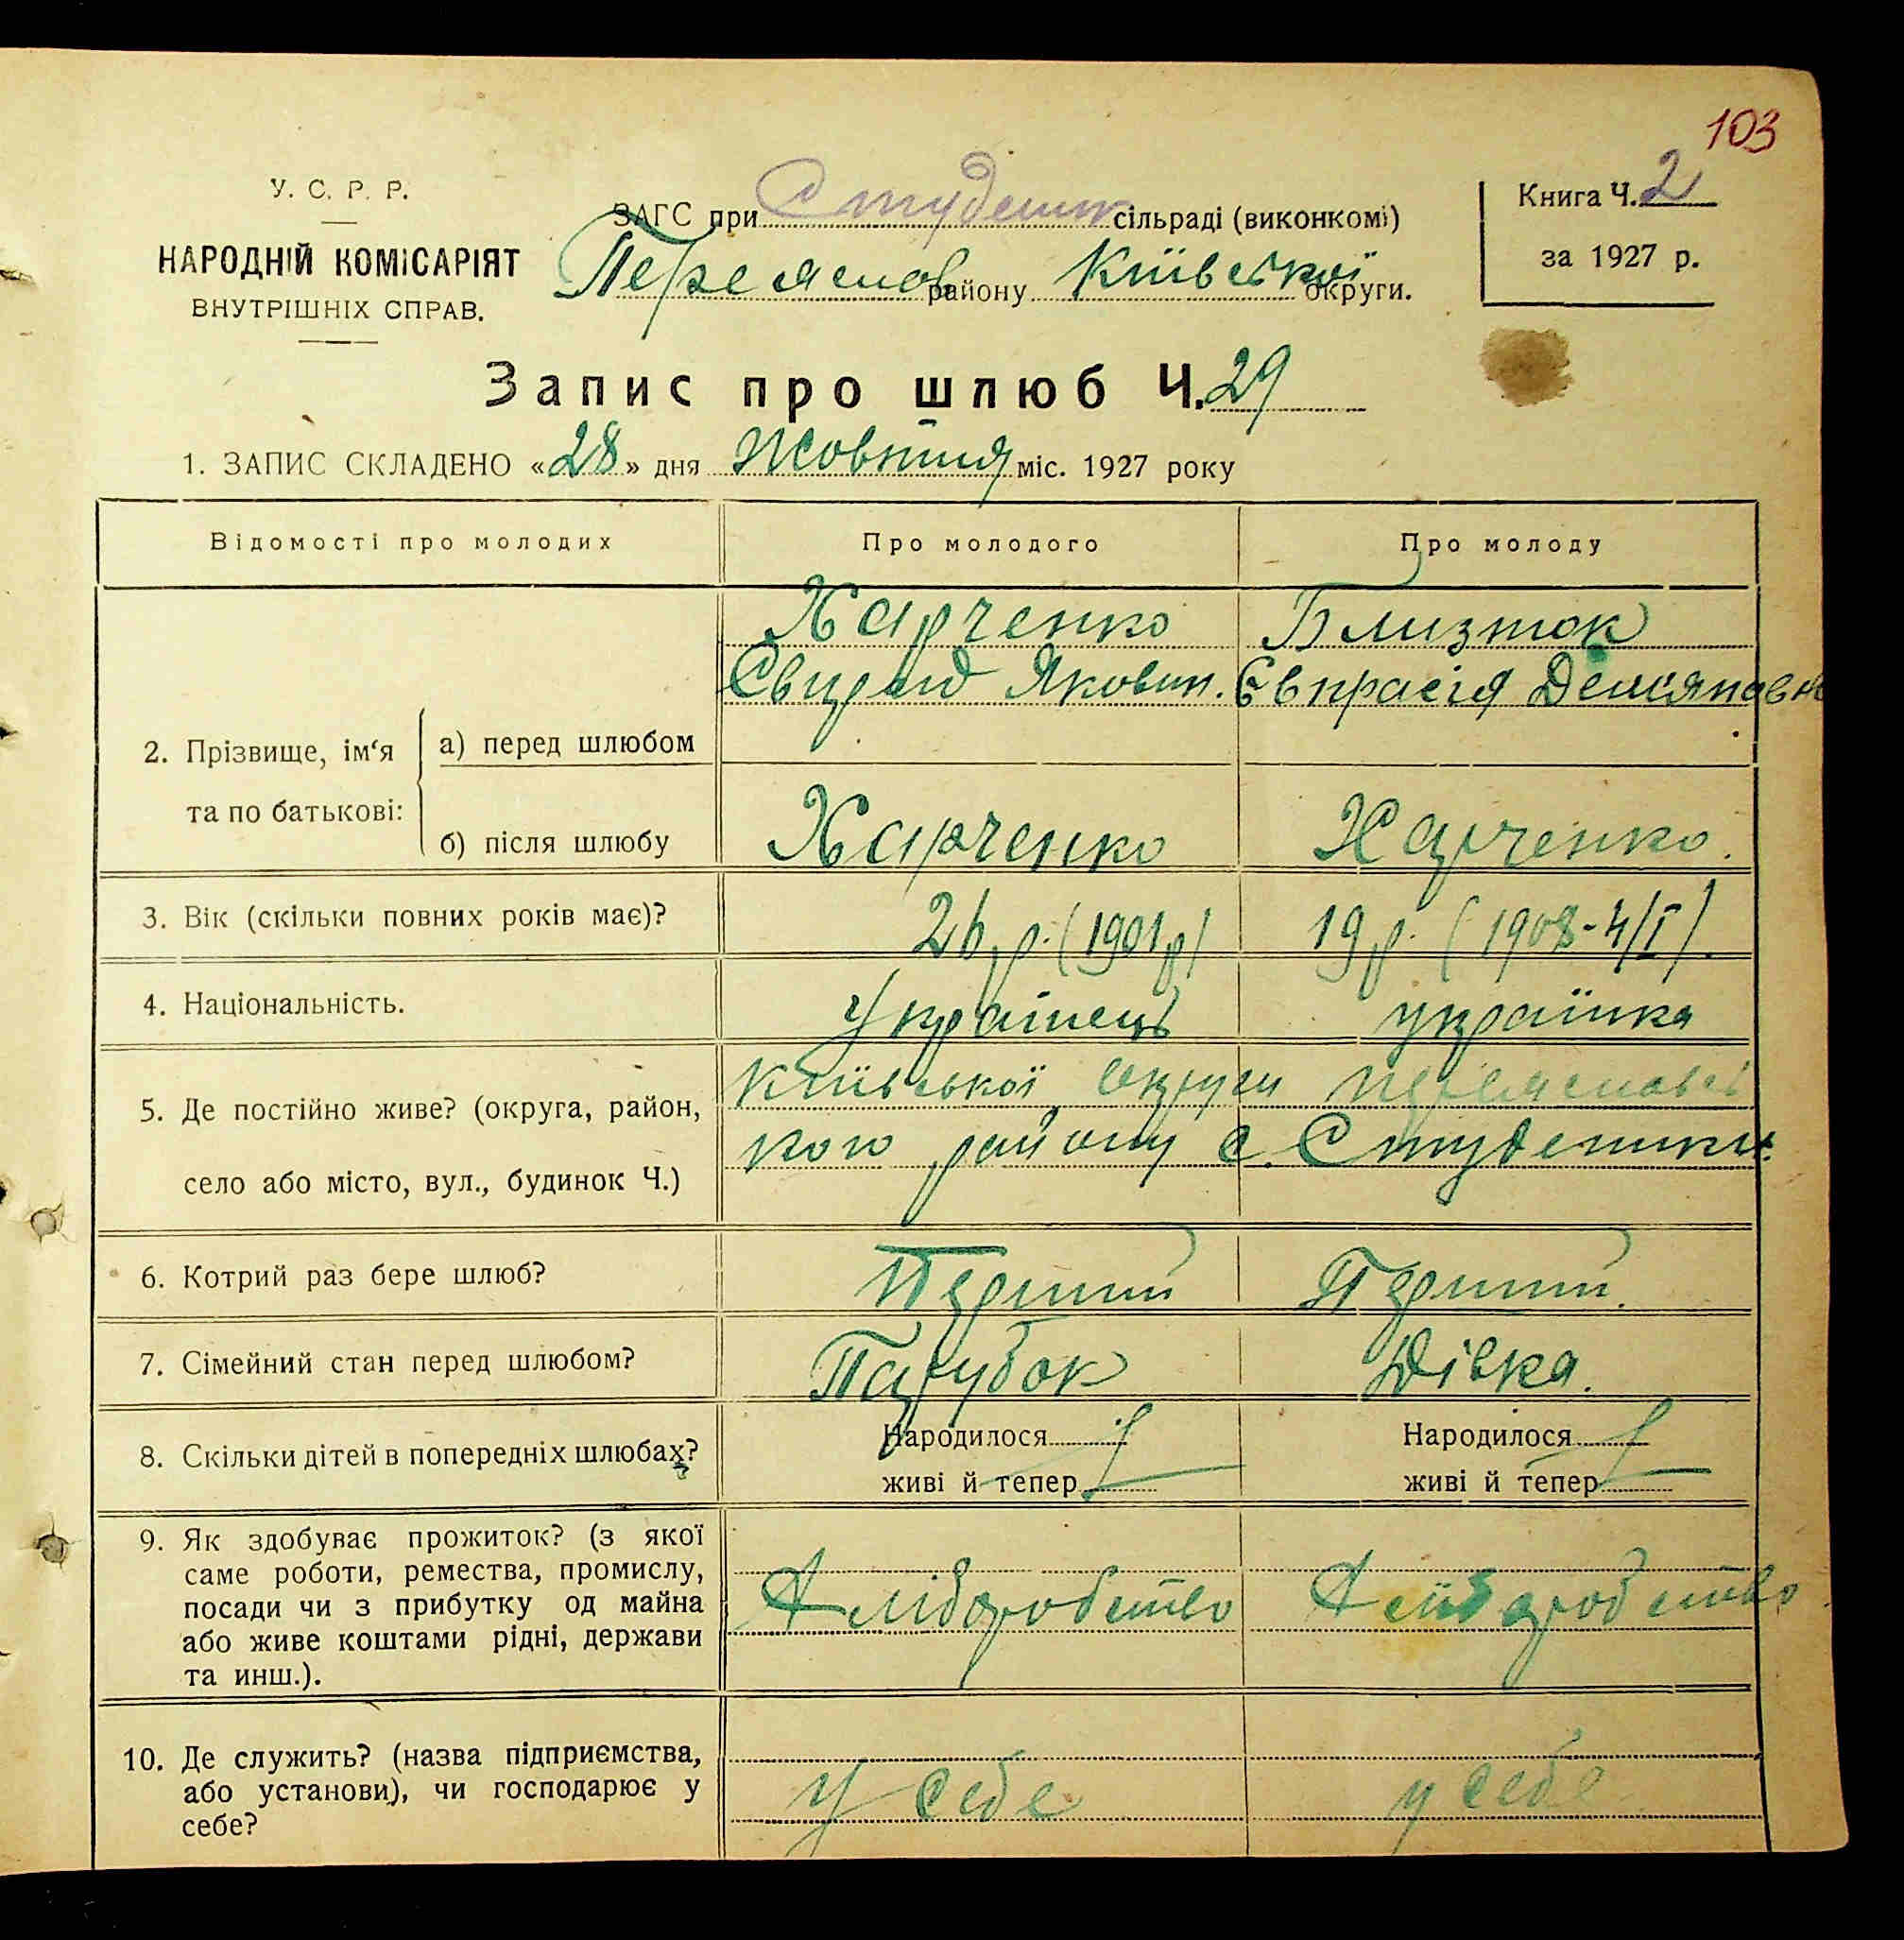 103
У. С. Р. Р.
НАРОДНІЙ КОМІСАРІЯТ
ВНУТРІШНІХ СПРАВ.
ЗАГС при Студеник сільраді (виконкомі)
Переяслов району Київської округи.
Книга Ч. 2
за 1927 р.
Запис про шлюб Ч. 29
1. ЗАПИС СКЛАДЕНО «28» дня Жовтня міс. 1927 року
Відомості про молодих Про молодого Про молоду
2. Прізвище, ім‘я та по батькові:
а) перед шлюбом
Харченко Близнюк
Якович. Євпрасія Демяновна
б) після шлюбу
Харченко Харченко.
3. Вік (скільки повних років має)? 26 р. (1901 р) 19 р. (1908-4/I).
4. Національність. Українець українка
5. Де постійно живе? (округа, район,
село або місто, вул., будинок Ч.)
Київської округи переяславсь
кого району с. Студеники.
6. Котрий раз бере шлюб? Перший Перший.
7. Сімейний стан перед шлюбом? Парубок Дівка.
8. Скільки дітей в попередніх шлюбах?
Народилося Народилося
живі й тепер живі й тепер
9. Як здобуває прожиток? (з якої
саме роботи, ремества, промислу,
посади чи з прибутку од майна
або живе коштами рідні, держави
та инш.).
Хліборобство Хліборобство
10. Де служить? (назва підприємства,
або установи), чи господарює у
себе?
У себе у себе